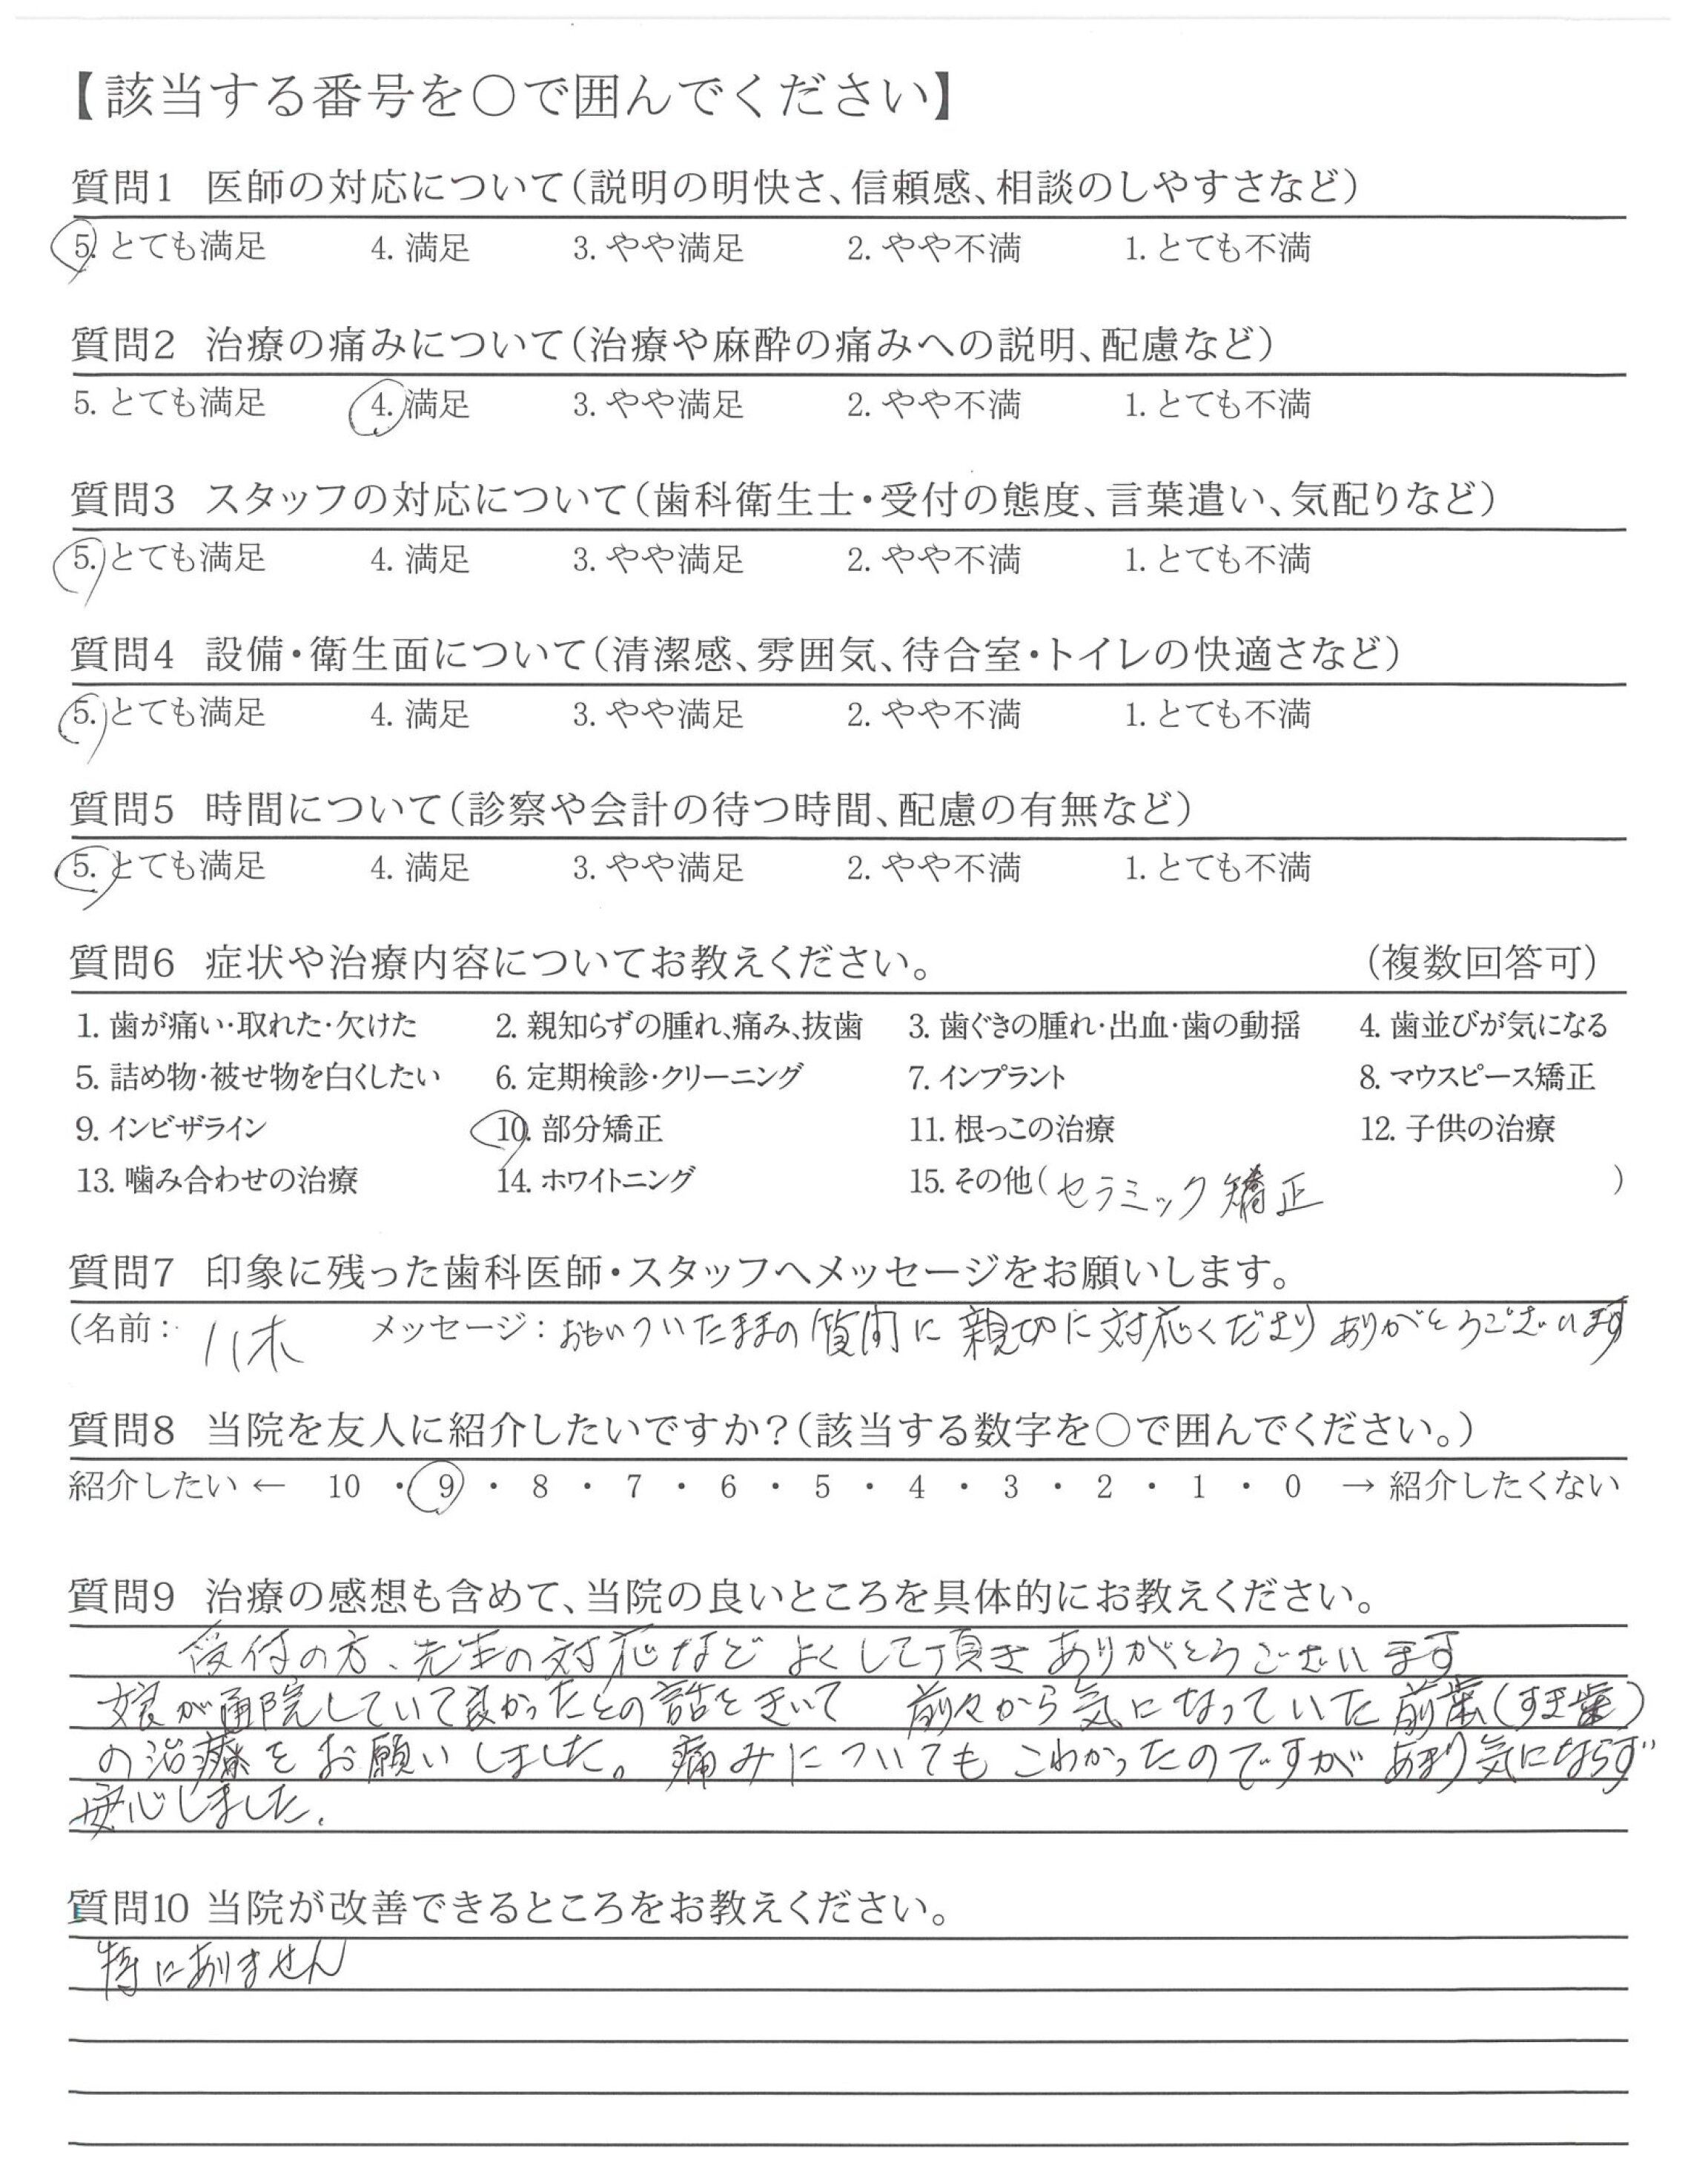 【該当する番号を〇で囲んでください】
質問1 医師の対応について(説明の明快さ、信頼感、相談のしやすさなど)
5. とても満足 4. 満足 3. やや満足 2. やや不満 1. とても不満
質問2 治療の痛みについて(治療や麻酔の痛みへの説明、配慮など)
5. とても満足 4. 満足 3. やや満足 2. やや不満 1. とても不満
質問3 スタッフの対応について(歯科衛生士・受付の態度、言葉遣い、気配りなど)
5. とても満足 4. 満足 3. やや満足 2. やや不満 1. とても不満
質問4 設備・衛生面について(清潔感、雰囲気、待合室・トイレの快適さなど)
5. とても満足 4. 満足 3. やや満足 2. やや不満 1. とても不満
質問5 時間について(診察や会計の待つ時間、配慮の有無など)
5. とても満足 4. 満足 3. やや満足 2. やや不満 1. とても不満
質問6 症状や治療内容についてお教えください。 (複数回答可)
1. 歯が痛い・取れた・欠けた 2. 親知らずの腫れ、痛み、抜歯 3. 歯ぐきの腫れ・出血・歯の動揺 4. 歯並びが気になる
5. 詰め物・被せ物を白くしたい 6. 定期検診・クリーニング 7. インプラント 8. マウスピース矯正
9. インビザライン 10. 部分矯正 11. 根っこの治療 12. 子供の治療
13. 噛み合わせの治療 14. ホワイトニング 15. その他(セラミック矯正)
質問7 印象に残った歯科医師・スタッフへメッセージをお願いします。
(名前: 八木 メッセージ: おもいついたままの質問に親切に対応くださりありがとうございます
質問8 当院を友人に紹介したいですか?(該当する数字を〇で囲んでください。)
紹介したい ← 10 ・ 9 ・ 8 ・ 7 ・ 6 ・ 5 ・ 4 ・ 3 ・ 2 ・ 1 ・ 0 → 紹介したくない
質問9 治療の感想も含めて、当院の良いところを具体的にお教えください。
受付の方、先生の対応など よくして頂き ありがとうございます
娘が通院していて良かったとの話をきいて 前々から気になっていた前歯(すき歯)
の治療をお願いしました。痛みについても こわかったのですが あまり気にならず
安心しました。
質問10 当院が改善できるところをお教えください。
特にありません